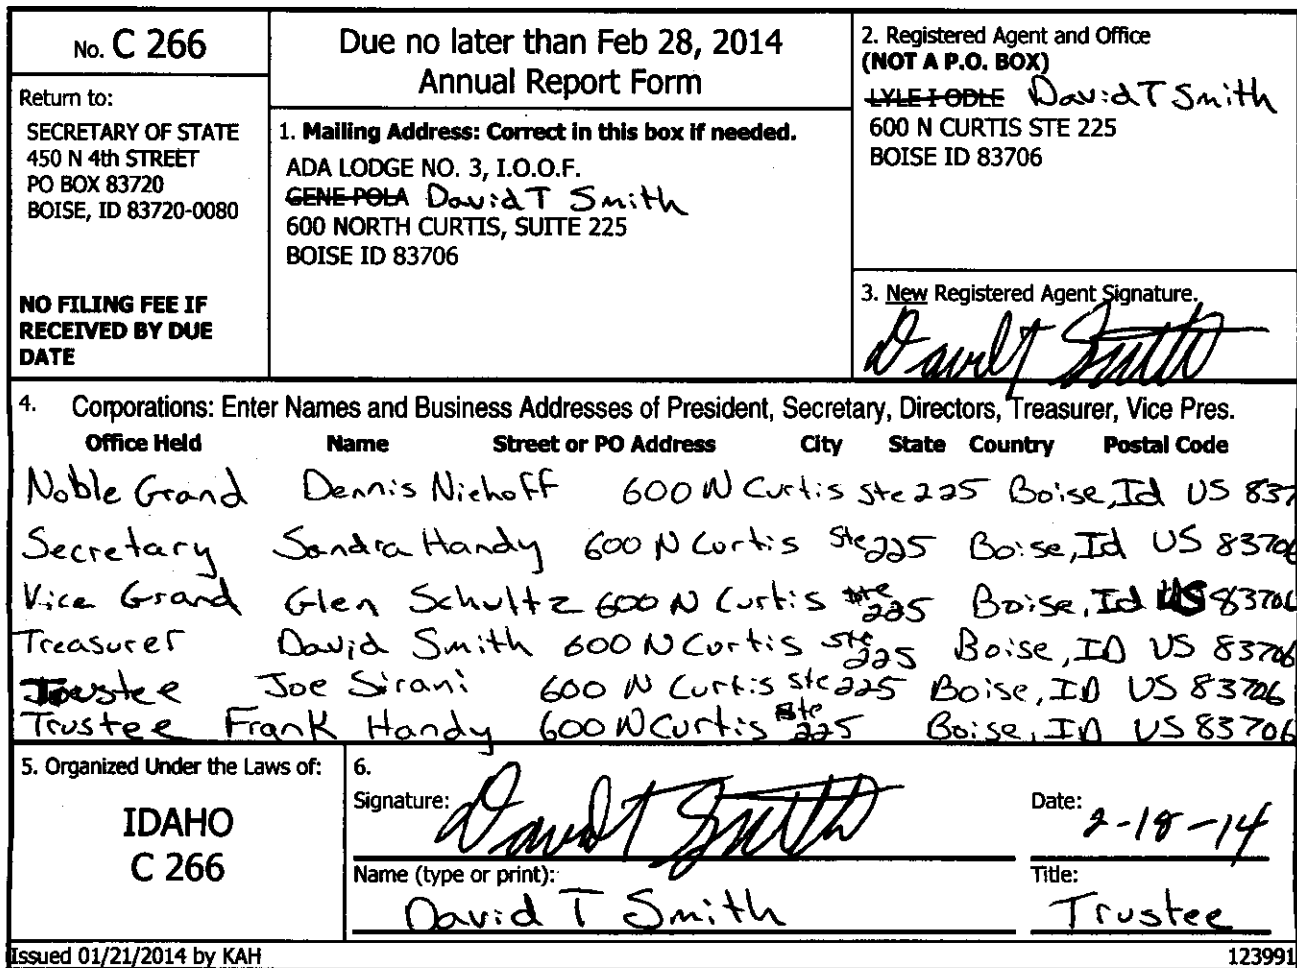 No. C 266
Return to:
SECRETARY OF STATE
450 N 4th STREET
PO BOX 83720
BOISE, ID 83720-0080
NO FILING FEE IF
RECEIVED BY DUE
DATE
Due no later than Feb 28, 2014
Annual Report Form
1. Mailing Address: Correct in this box if needed.
ADA LODGE NO. 3, I.O.O.F.
GENE POLA David T Smith
600 NORTH CURTIS, SUITE 225
BOISE ID 83706
2. Registered Agent and Office
(NOT A P.O. BOX)
LYLE I ODLE David T Smith
600 N CURTIS STE 225
BOISE ID 83706
3. New Registered Agent Signature.
David T Smith
4. Corporations: Enter Names and Business Addresses of President, Secretary, Directors, Treasurer, Vice Pres.
Office Held Name Street or PO Address City State Country Postal Code
Noble Grand Dennis Niehoff 600 N Curtis Ste 225 Boise, Id US 837
Secretary Sandra Handy 600 N Curtis Ste 225 Boise, Id US 83706
Vice Grand Glen Schultz 600 N Curtis Ste 225 Boise, Id US 83706
Treasurer David Smith 600 N Curtis Ste 225 Boise, ID US 83706
Trustee Joe Sirani 600 N Curtis Ste 225 Boise, ID US 83706
Trustee Frank Handy 600 N Curtis Ste 225 Boise, ID US 83706
5. Organized Under the Laws of:
IDAHO
C 266
6.
Signature: David T Smith
Date: 2-18-14
Name (type or print):
David T Smith
Title:
Trustee
Issued 01/21/2014 by KAH
123991